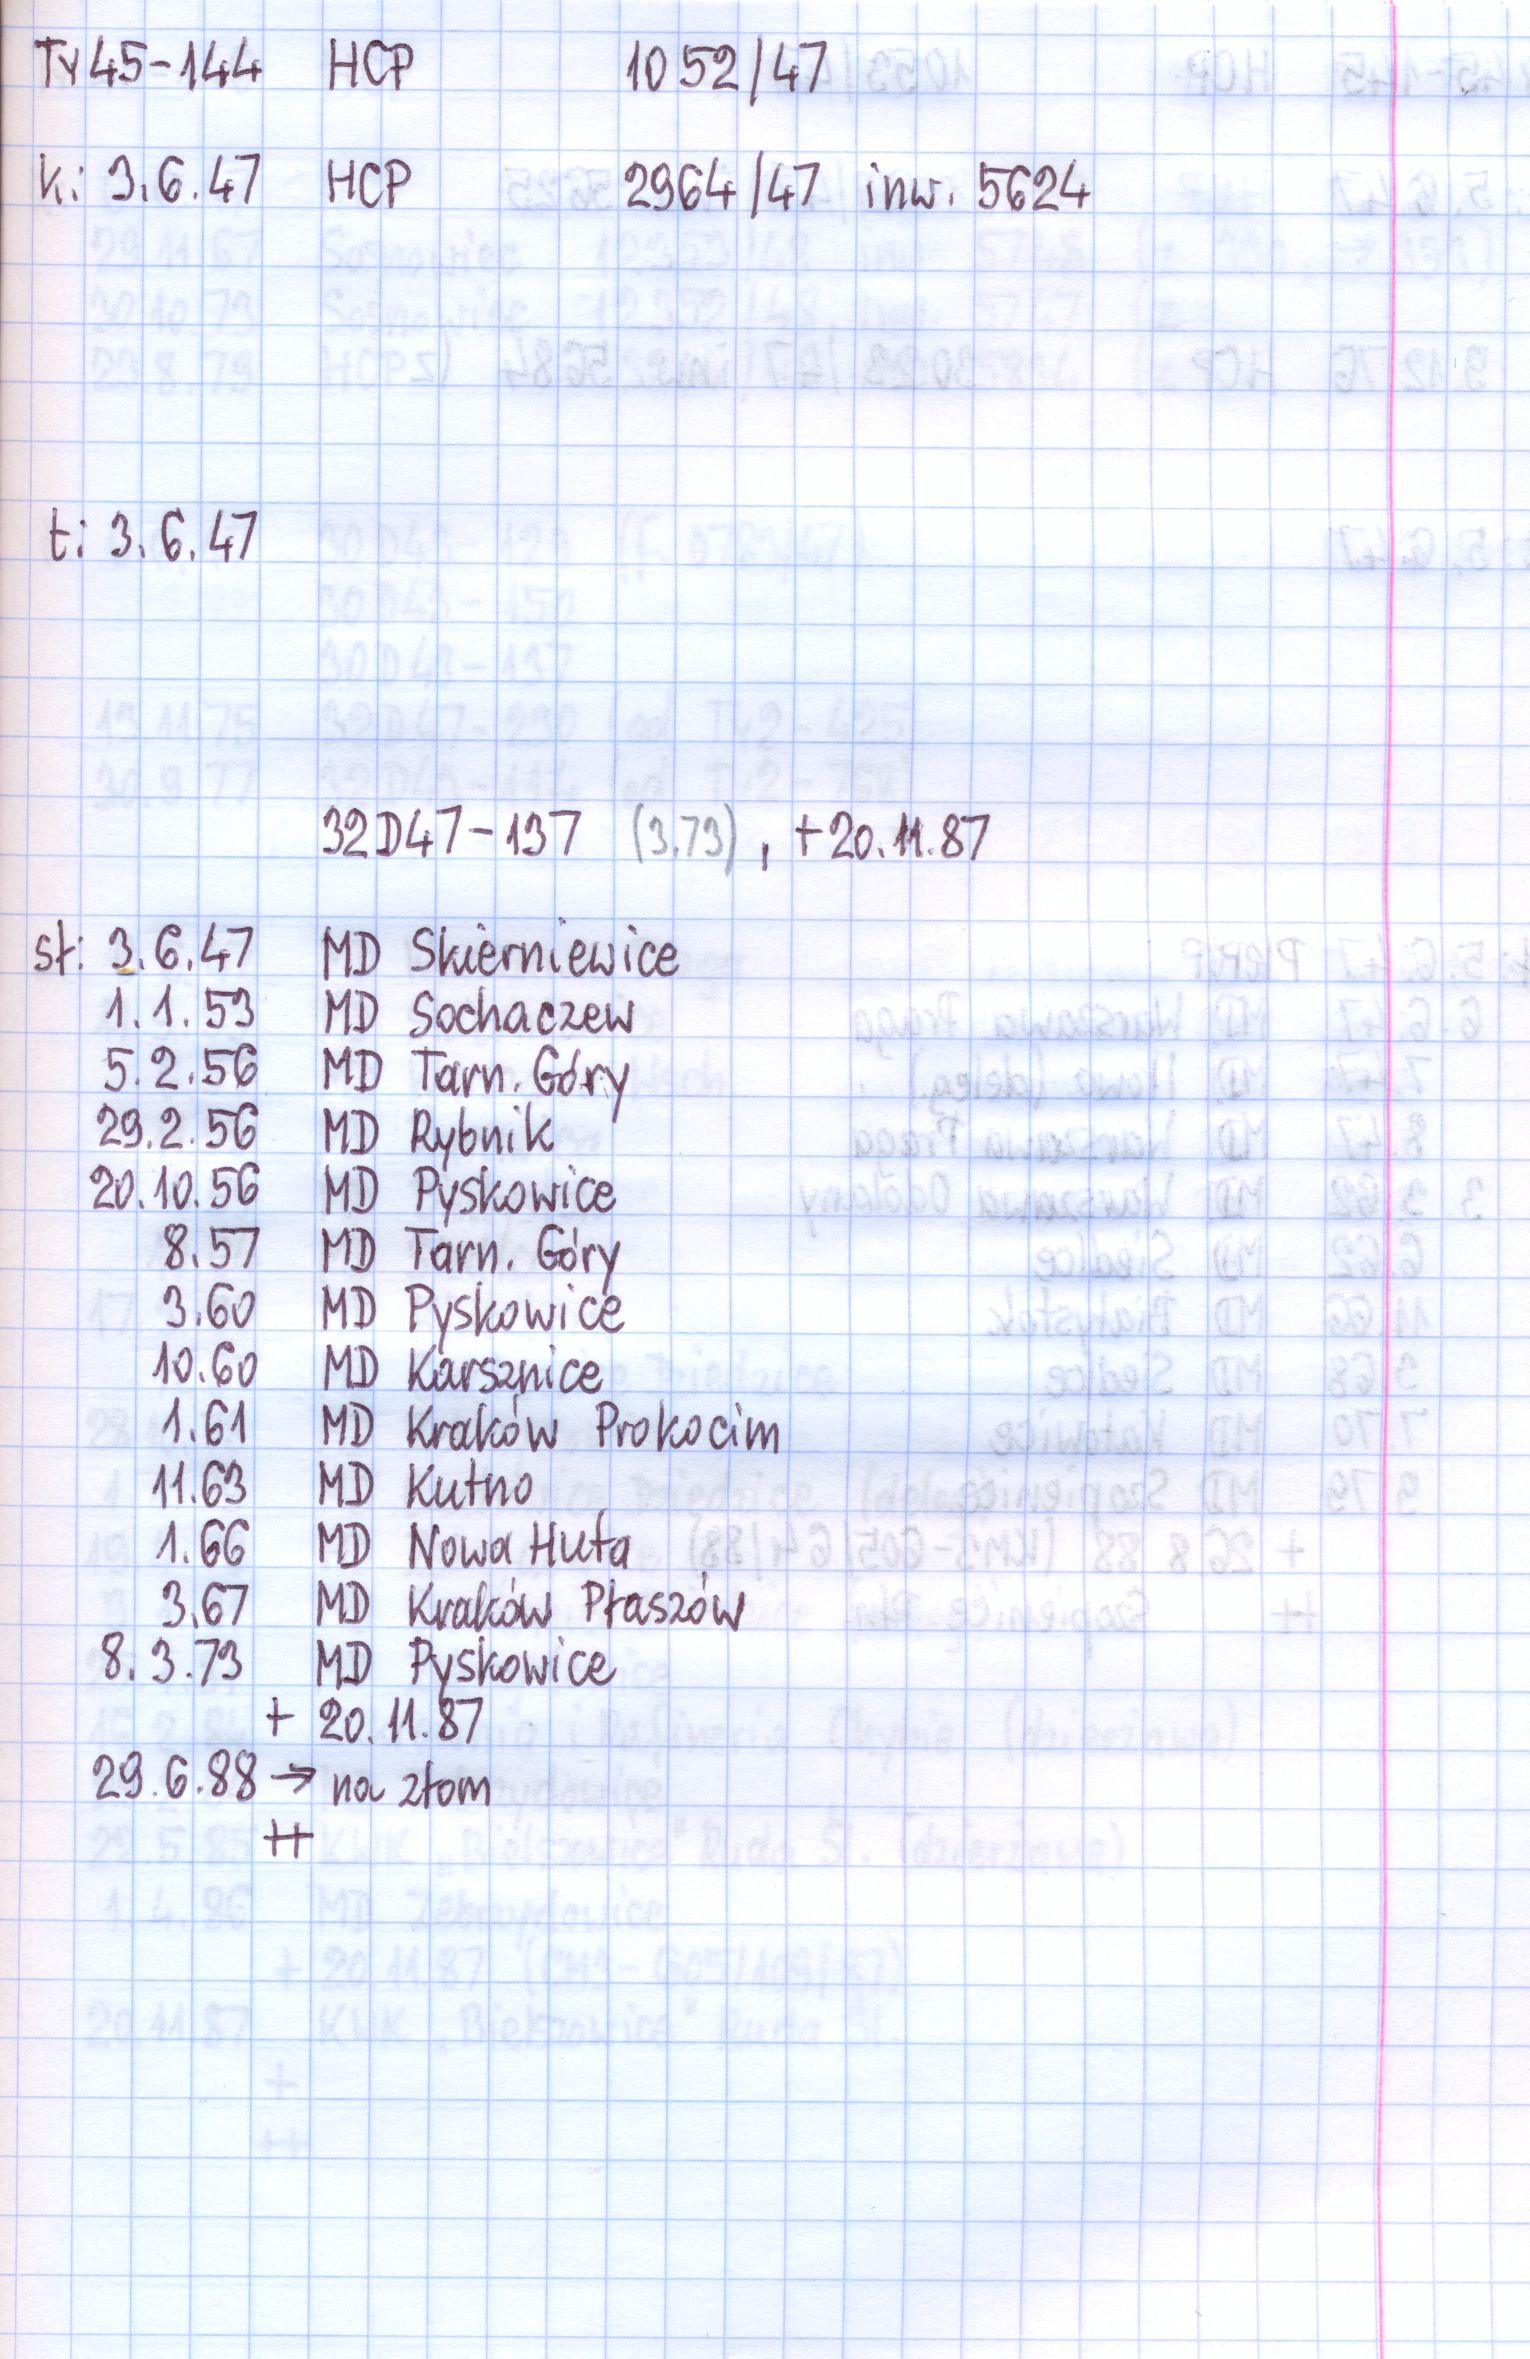 Ty45-144 HCP 1052/47
k: 3.6.47 HCP 2964/47 inw. 5624
t: 3.6.47
32D47-137 (3.73), +20.11.87
st: 3.6.47 MD Skierniewice
1.1.53 MD Sochaczew
5.2.56 MD Tarn. Góry
29.2.56 MD Rybnik
20.10.56 MD Pyskowice
8.57 MD Tarn. Góry
3.60 MD Pyskowice
10.60 MD Karsznice
1.61 MD Kraków Prokocim
11.63 MD Kutno
1.66 MD Nowa Huta
3.67 MD Kraków Płaszów
8.3.73 MD Pyskowice
+ 20.11.87
29.6.88 → na złom
++